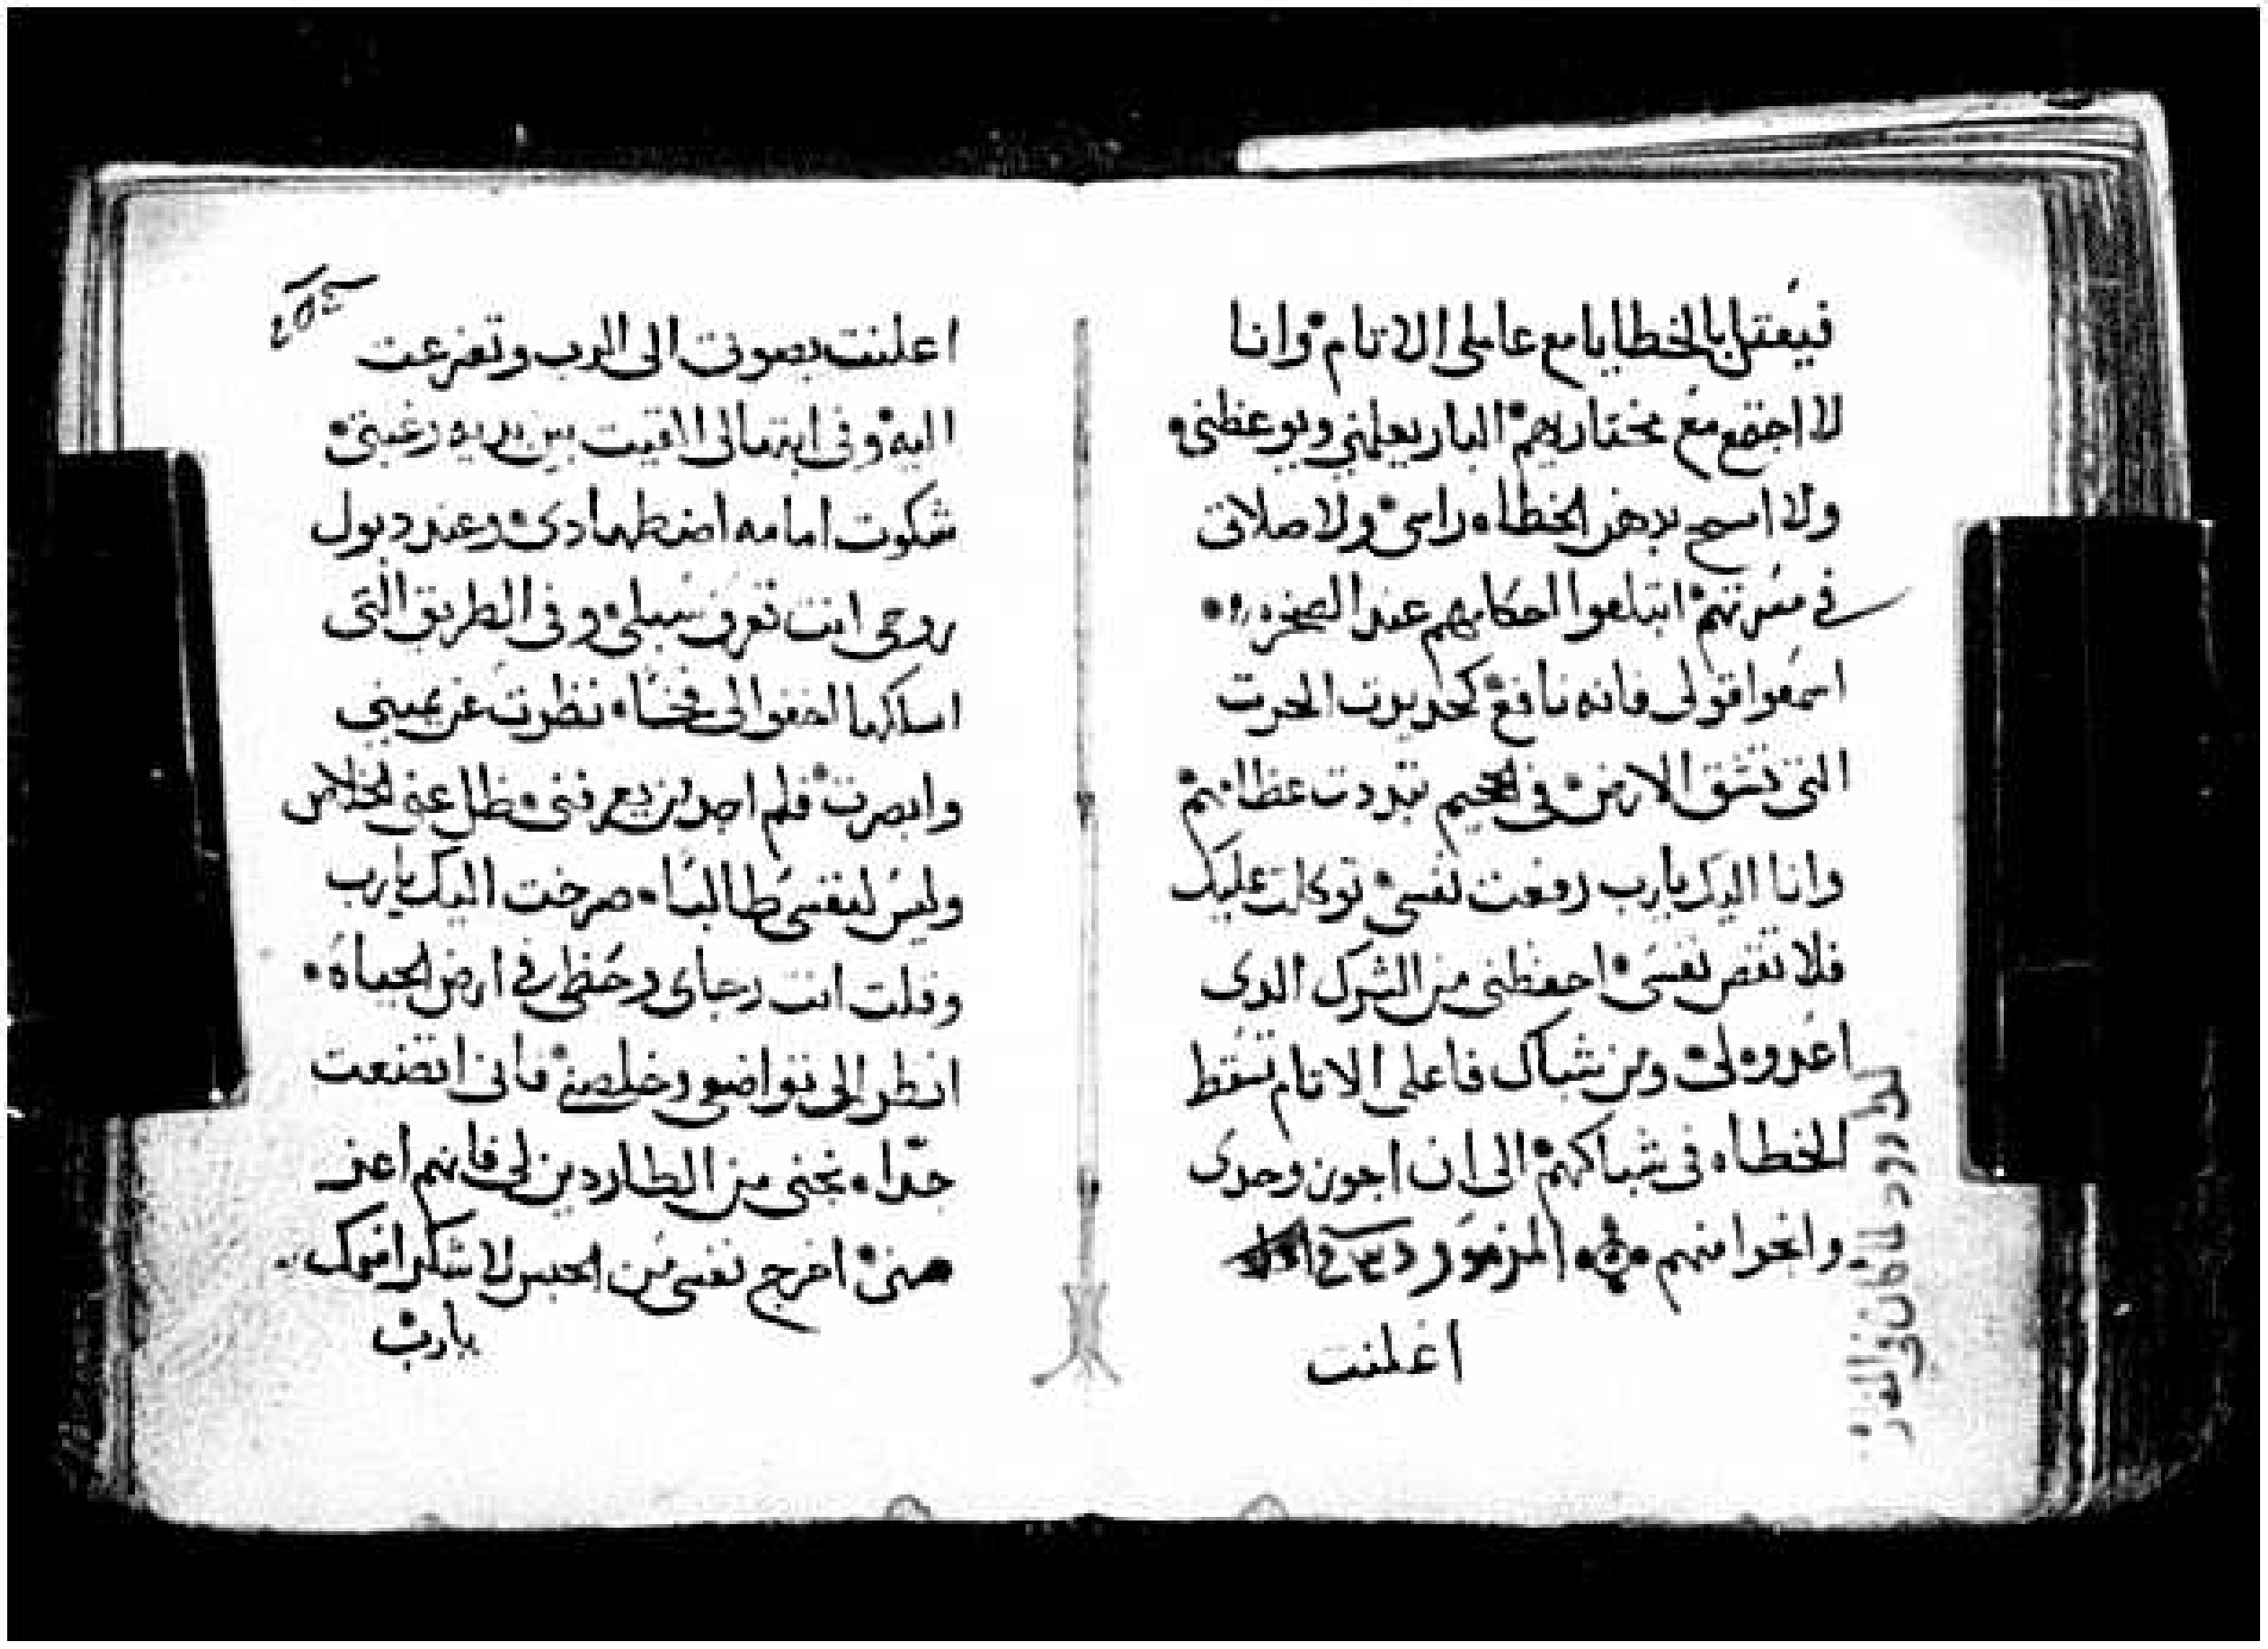 فيعتل بالخطايا مع عاملى الاتام وانا
لا اجتمع مع مختاريهم البار يعلمنى ويوعظنى
ولا امسح بدهن الخطاه راسى ولا صلاتى
فى مسرتهم ابتلعوا احكامهم عند الصخره
اسمعوا قولى فانه نافع كحديرت الحرت
التى تشق الارض فى الجحيم تبددت عظامهم
وانا اليك يارب رفعت نفسى توكلت عليك
فلا تقص نفسى احفظنى من الشرك الدى
اعدوه لى ومن شباك فاعلى الاتام تسقط
الخطاه فى شباكهم الى ان اجوز وحدى
وانجوا منهم المزمور
اعلنت
لداوود لما كان فى المغار
اعلنت بصوتى الى الرب وتضرعت
اليه وفى ابتهالى القيت بين يديه رغبتى
شكوت امامه اضطهادى وعند دبول
روحى انت تعرف سبلى وفى الطريق التى
اسلكها اخفوا لى فخاً نظرت عن يمينى
وابصرت فلم اجد من يعرفنى ظل عنى الخلاص
وليس لنفسى طالباً صرخت اليك يارب
وقلت انت رجاى وحظى فى ارض الحياة
انظر الى تواضعى وخلصنى فانى اتضعت
جداً نجنى من الطاردين لى فانهم اعز
منى اخرج نفسى من الحبس لاشكر اسمك
يارب